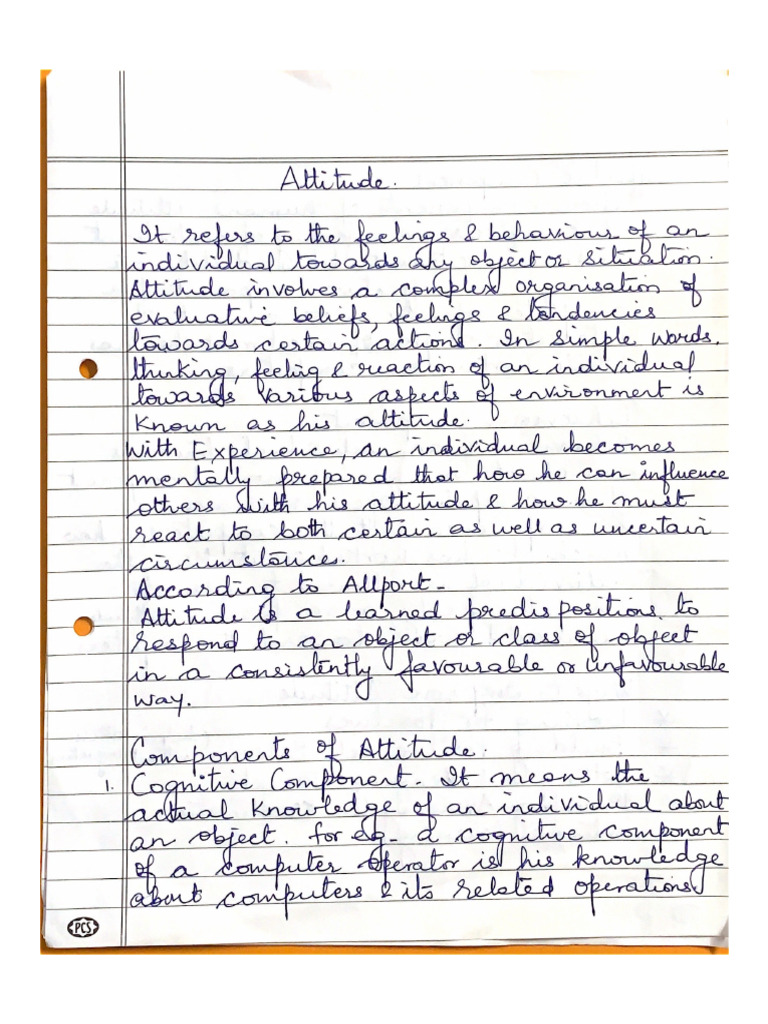 Attitude.
It refers to the feelings & behaviour of an
individual towards any object or situation.
Attitude involves a complex organisation of
evaluative beliefs, feelings & tendencies
towards certain actions. In simple words,
thinking, feelig & reaction of an individual
towards various aspects of environment is
known as his attitude.
With Experience, an individual becomes
mentally prepared that how he can influence
others with his attitude & how he must
react to both certain as well as uncertain
circumstances.
According to Allport-
Attitude is a learned predispositions to
respond to an object or class of object
in a consistently favourable or unfavourable
way.
Components of Attitude.
1. Cognitive Component- It means the
actual knowledge of an individual about
an object. for eg. a cognitive component
of a computer operator is his knowledge
about computers & its related operations
PCS